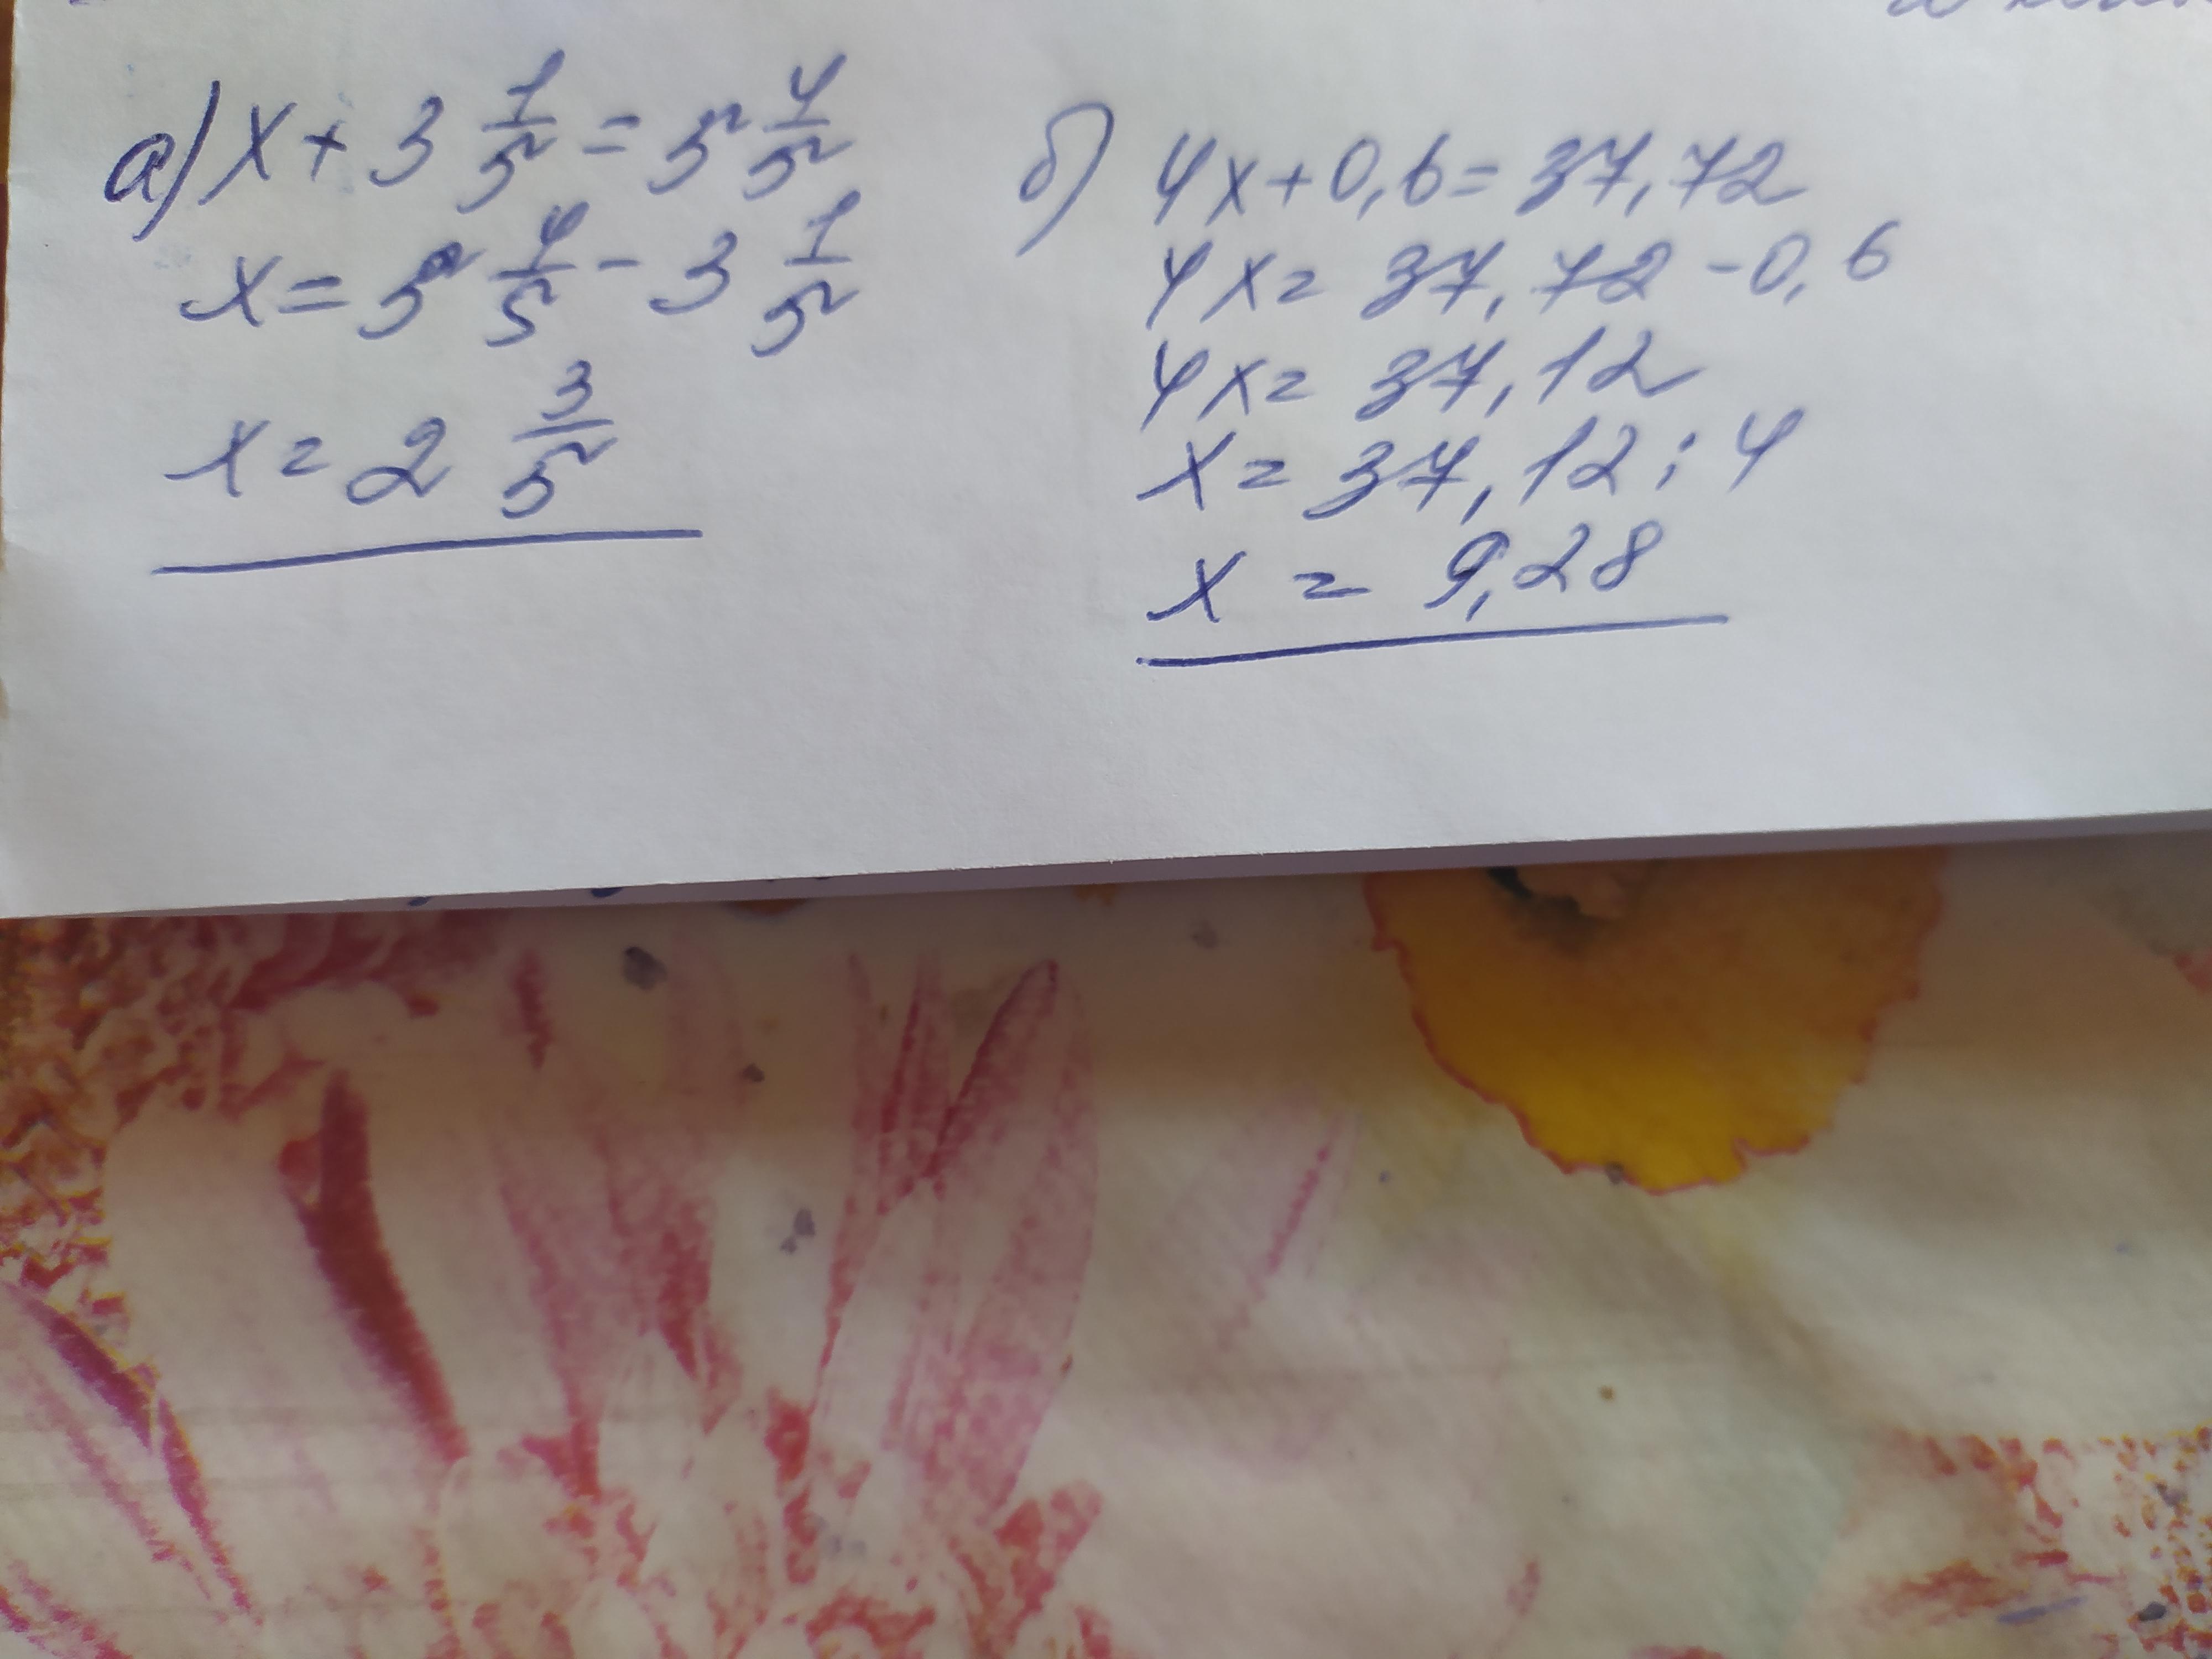 а) x + 3 1/5 = 5 4/5
x = 5 4/5 - 3 1/5
x = 2 3/5
б) 4x + 0,6 = 37,72
4x = 37,72 - 0,6
4x = 37,12
x = 37,12 : 4
x = 9,28